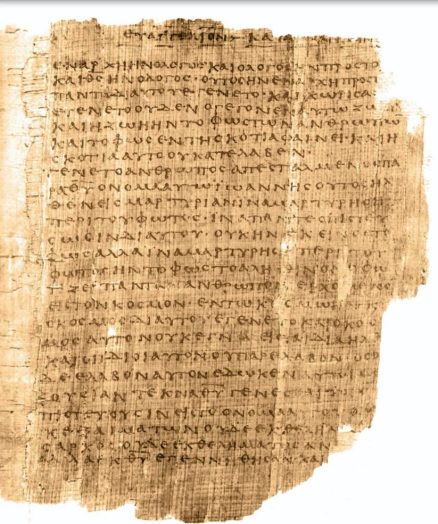 ΕΥΑΓΓΕΛΙΟΝ ΚΑΤΑ
ΕΝ ΑΡΧΗ ΗΝ Ο ΛΟΓΟΣ ΚΑΙ Ο ΛΟΓΟΣ ΗΝ ΠΡΟΣ ΤΟ
ΚΑΙ ΘΣ ΗΝ Ο ΛΟΓΟΣ ΟΥΤΟΣ ΗΝ ΕΝ ΑΡΧΗ ΠΡΟΣ
ΠΑΝΤΑ ΔΙ ΑΥΤΟΥ ΕΓΕΝΕΤΟ ΚΑΙ ΧΩΡΙΣ
ΕΓΕΝΕΤΟ ΟΥΔΕΝ Ο ΓΕΓΟΝΕΝ ΕΝ ΑΥΤΩ ΖΩ
ΚΑΙ Η ΖΩΗ ΗΝ ΤΟ ΦΩΣ ΤΩΝ ΑΝΘΡΩΠΩ
ΚΑΙ ΤΟ ΦΩΣ ΕΝ ΤΗ ΣΚΟΤΙΑ ΦΑΙΝΕΙ ΚΑΙ Η
ΣΚΟΤΙΑ ΑΥΤΟ ΟΥ ΚΑΤΕΛΑΒΕΝ
ΕΓΕΝΕΤΟ ΑΝΘΡΩΠΟΣ ΑΠΕΣΤΑΛΜΕΝΟΣ ΠΑ
ΡΑ ΘΥ ΟΝΟΜΑ ΑΥΤΩ ΙΩΑΝΝΗΣ ΟΥΤΟΣ ΗΛ
ΘΕΝ ΕΙΣ ΜΑΡΤΥΡΙΑΝ ΙΝΑ ΜΑΡΤΥΡΗΣΗ
ΠΕΡΙ ΤΟΥ ΦΩΤΟΣ ΙΝΑ ΠΑΝΤΕΣ ΠΙΣΤΕΥ
ΣΩΣΙΝ ΔΙ ΑΥΤΟΥ ΟΥΚ ΗΝ ΕΚΕΙΝΟΣ ΤΟ
ΦΩΣ ΑΛΛΑ ΙΝΑ ΜΑΡΤΥΡΗΣΗ ΠΕΡΙ ΤΟΥ
ΦΩΤΟΣ ΗΝ ΤΟ ΦΩΣ ΤΟ ΑΛΗΘΙΝΟΝ Ο ΦΩ
ΤΙΖΕΙ ΠΑΝΤΑ ΑΝΘΡΩΠΟΝ ΕΡΧΟΜΕΝΟΝ
ΕΙΣ ΤΟΝ ΚΟΣΜΟΝ ΕΝ ΤΩ ΚΟΣΜΩ ΗΝ
ΚΟΣΜΟΣ ΔΙ ΑΥΤΟΥ ΕΓΕΝΕΤΟ ΚΑΙ Ο ΚΟΣ
ΜΟΣ ΑΥΤΟΝ ΟΥΚ ΕΓΝΩ ΕΙΣ ΤΑ ΙΔΙΑ ΗΛΘΕ
ΚΑΙ ΟΙ ΙΔΙΟΙ ΑΥΤΟΝ ΟΥ ΠΑΡΕΛΑΒΟΝ ΟΣΟΙ
ΔΕ ΕΛΑΒΟΝ ΑΥΤΟΝ ΕΔΩΚΕΝ ΑΥΤΟΙΣ ΕΞ
ΟΥΣΙΑΝ ΤΕΚΝΑ ΘΥ ΓΕΝΕΣΘΑΙ
ΠΙΣΤΕΥΟΥΣΙΝ ΕΙΣ ΤΟ ΟΝΟΜΑ ΑΥΤΟΥ
ΕΞ ΑΙΜΑΤΩΝ ΟΥΔΕ ΕΚ ΘΕΛΗΜΑΤΟΣ
ΣΑΡΚΟΣ ΟΥΔΕ ΕΚ ΘΕΛΗΜΑΤΟΣ ΑΝ
ΔΡΟΣ ΑΛΛΑ ΕΚ ΘΥ ΕΓΕΝΝΗΘΗΣΑΝ ΚΑΙ